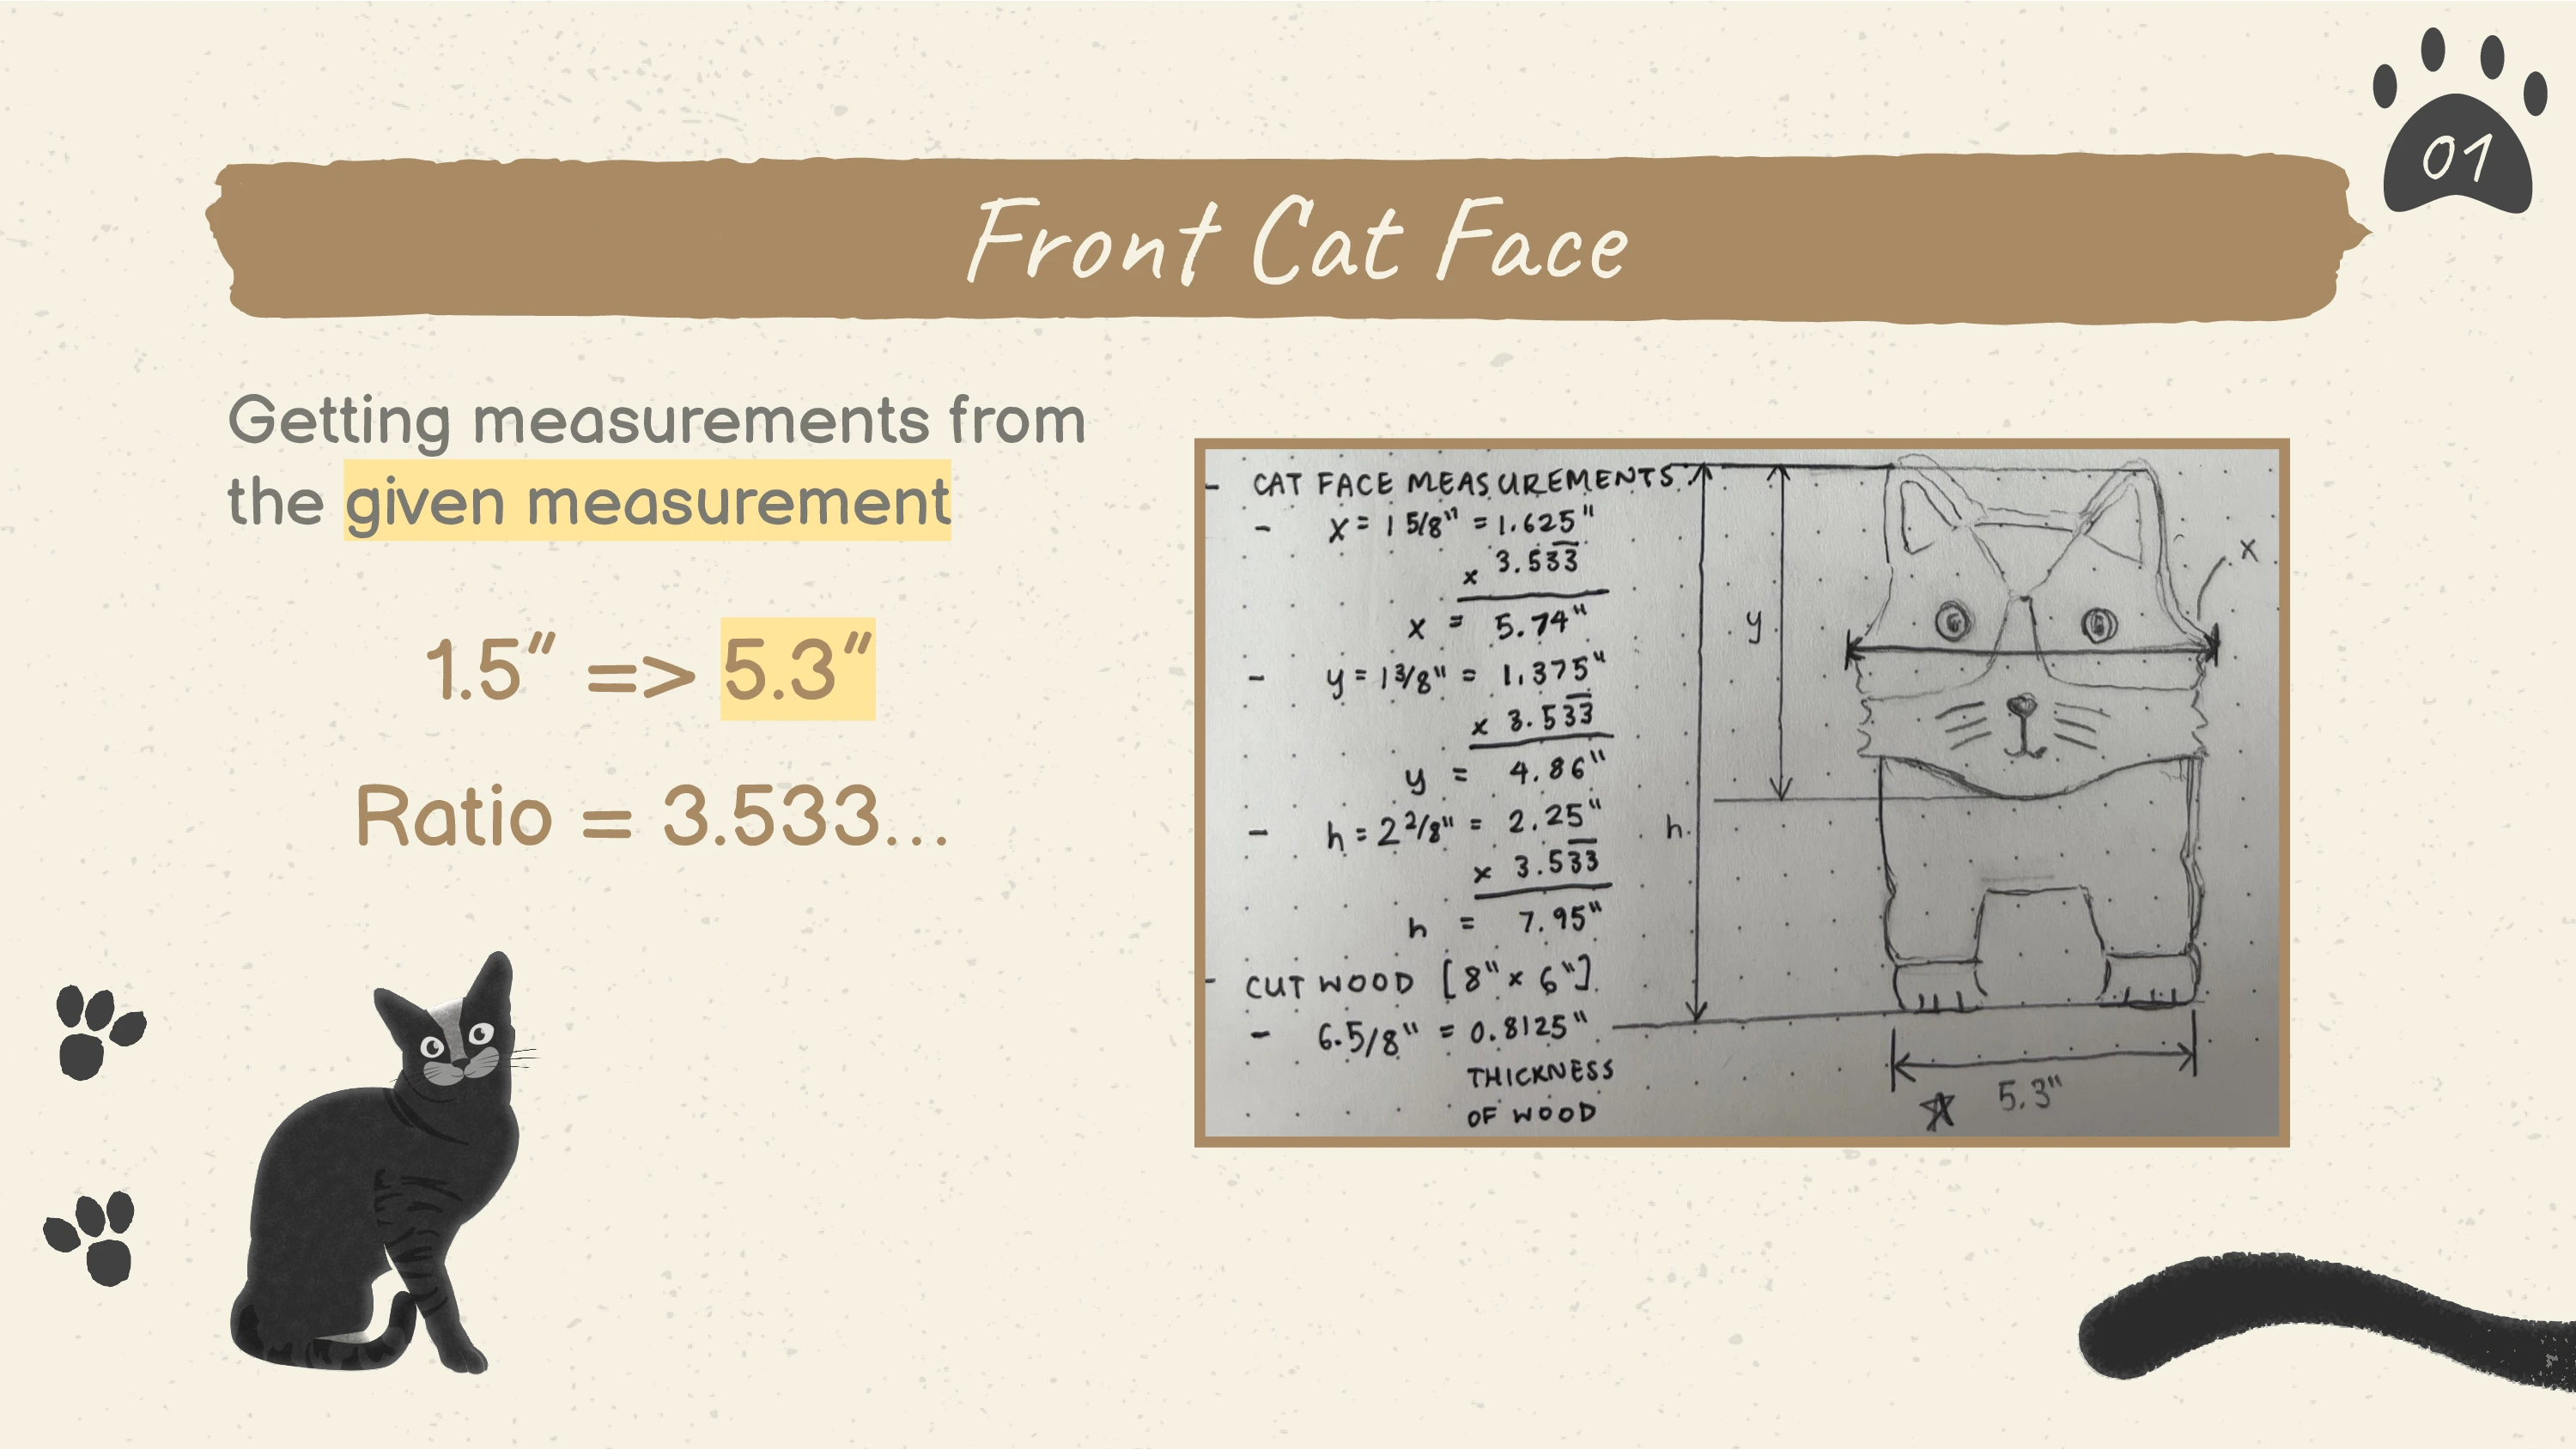 01
Front Cat Face
Getting measurements from
the given measurement
1.5" => 5.3"
Ratio = 3.533...
- CAT FACE MEASUREMENTS:
- x = 1 5/8" = 1.625"
x 3.533
x = 5.74"
- y = 1 3/8" = 1.375"
x 3.533
y = 4.86"
- h = 2 2/8" = 2.25"
x 3.533
h = 7.95"
- CUT WOOD [8" x 6"]
- 6.5/8" = 0.8125"
THICKNESS
OF WOOD
x
y
h
5.3"